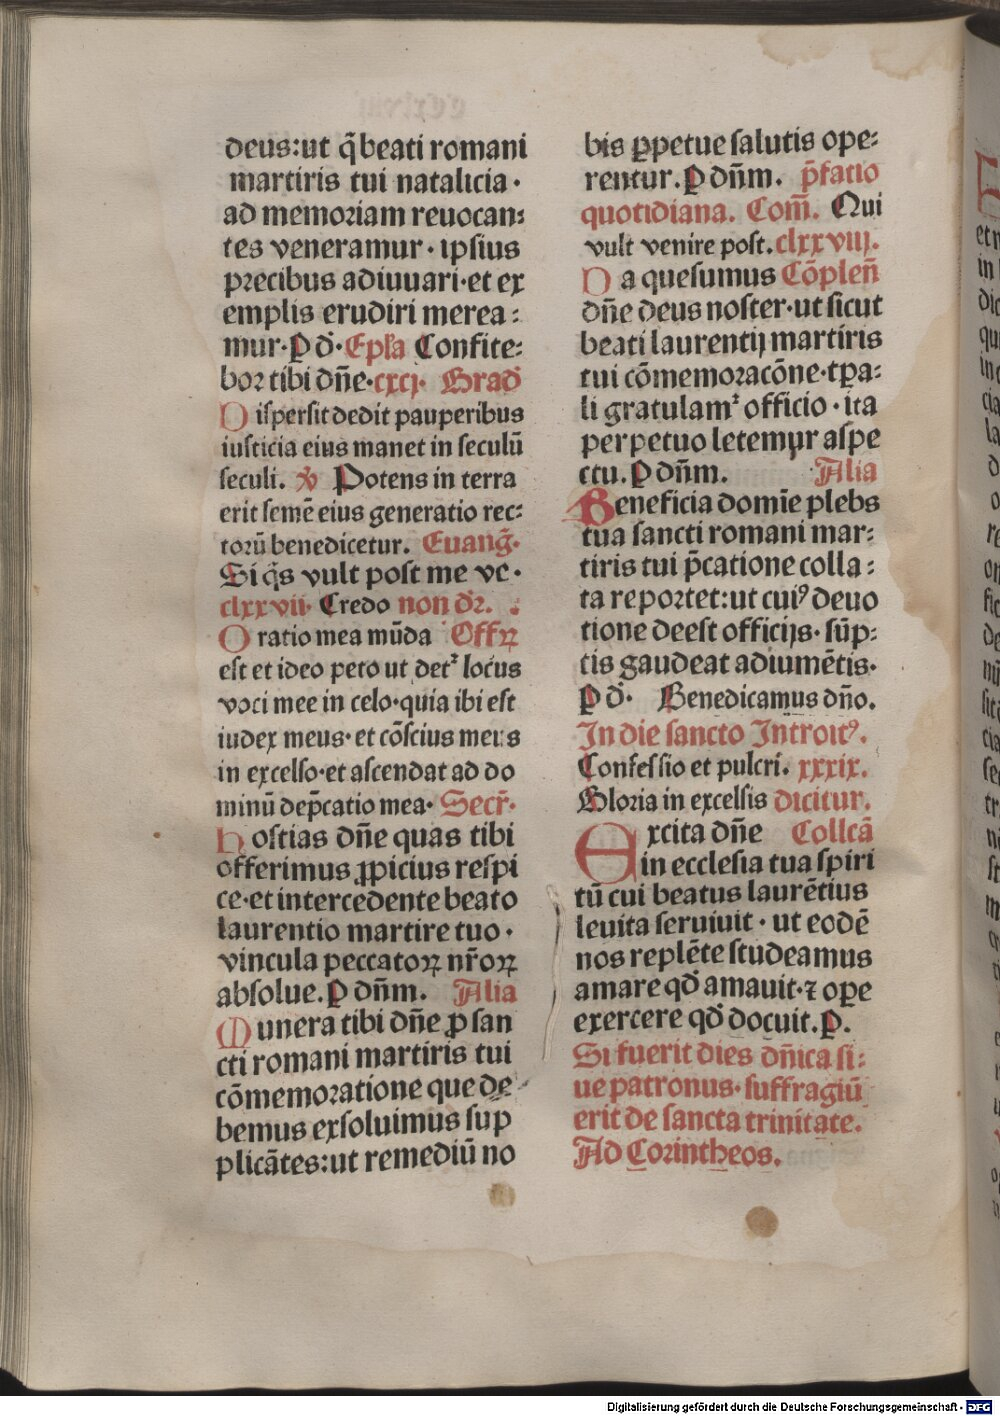 deus:ut q̃ beati romani
martiris tui natalicia ·
ad memoꝛiam reuocan:
tes veneramur · ipſius
pꝛecibus adiuuari·et ex
emplis erudiri merea:
mur·P d̄·Epl̃a Confite:
boꝛ tibi dñe·cxcj· Grad̄
Diſperſit dedit pauperibus
iuſticia eius manet in ſeculū
ſeculi. ꝟ Potens in terra
erit ſemē eius generatio rec:
toꝛū benedicetur. Euang̃·
Si q̃s vult poſt me ve·
clxxvii· Credo non dꝛ̄.
Oratio mea mūda Offꝝ
eſt et ideo peto ut detᷣ locus
voci mee in celo·quia ibi eſt
iudex meus·et cōſcius meus
in excelſo·et aſcendat ad do
minū dep̄catio mea· Secꝛ̄·
Hoſtias dñe quas tibi
offerimus ꝓpicius reſpi
ce·et intercedente beato
laurentio martire tuo·
vincula peccatoꝝ nr̃oꝝ
abſolue.P dñm. Alia
Munera tibi dñe ꝓ ſan
cti romani martiris tui
cōmemoꝛatione que de
bemus exſoluimus ſup
plicātes:ut remediū no
bis ꝑpetue ſalutis ope:
rentur.P dñm. p̄fatio
quotidiana. Com̄. Qui
vult venire poſt.clxxviij.
Da queſumus Cōplen̄
dñe deus noſter·ut ſicut
beati laurentij martiris
tui cōmemoꝛacōne·tꝑa:
li gratulamᷣ officio·ita
perpetuo letemur aſpe
ctu.P dñm. Alia
Beneficia domīe plebs
tua ſancti romani mar:
tiris tui p̄catione colla:
ta repoꝛtet:ut cuiꝰ deuo
tione deeſt officijs·ſūp:
tis gaudeat adiumētis·
P d̄· Benedicamus dño.
In die ſancto Introitꝰ.
Confeſſio et pulcri. xxxix.
Gloꝛia in excelſis dicitur.
Excita dñe Collcā
in eccleſia tua ſpiri
tū cui beatus laurētius
leuita ſeruiuit·ut eodē
nos replēte ſtudeamus
amare qd̄ amauit·ꝛ oꝑe
exercere qd̄ docuit.P.
Si fuerit dies dñica ſi:
ue patronus·ſuffragiū
erit de ſancta trinitate.
Ad Coꝛintheos.
Digitalisierung gefördert durch die Deutsche Forschungsgemeinschaft - DFG